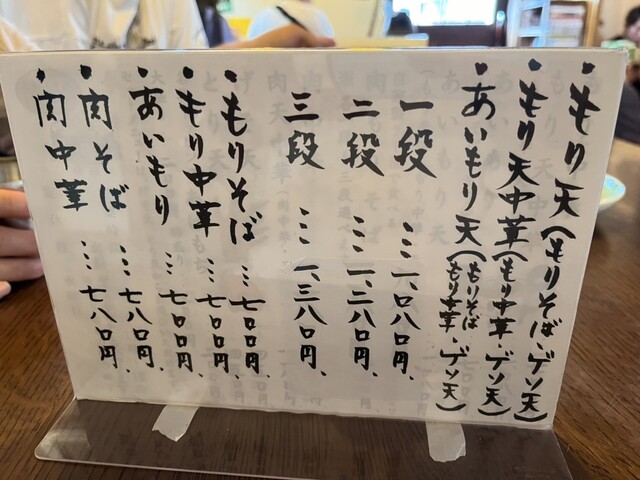 ・もり天(もりそば、ゲソ天)
・もり天中華(もり中華、ゲソ天)
・あいもり天(もりそば もり中華、ゲソ天)
一段 … 一、〇八〇円、
二段 … 一、二八〇円、
三段 … 一、三八〇円、
・もりそば … 七〇〇円、
・もり中華 … 七〇〇円、
・あいもり … 七〇〇円、
・肉そば … 七八〇円、
・肉中華 … 七八〇円、